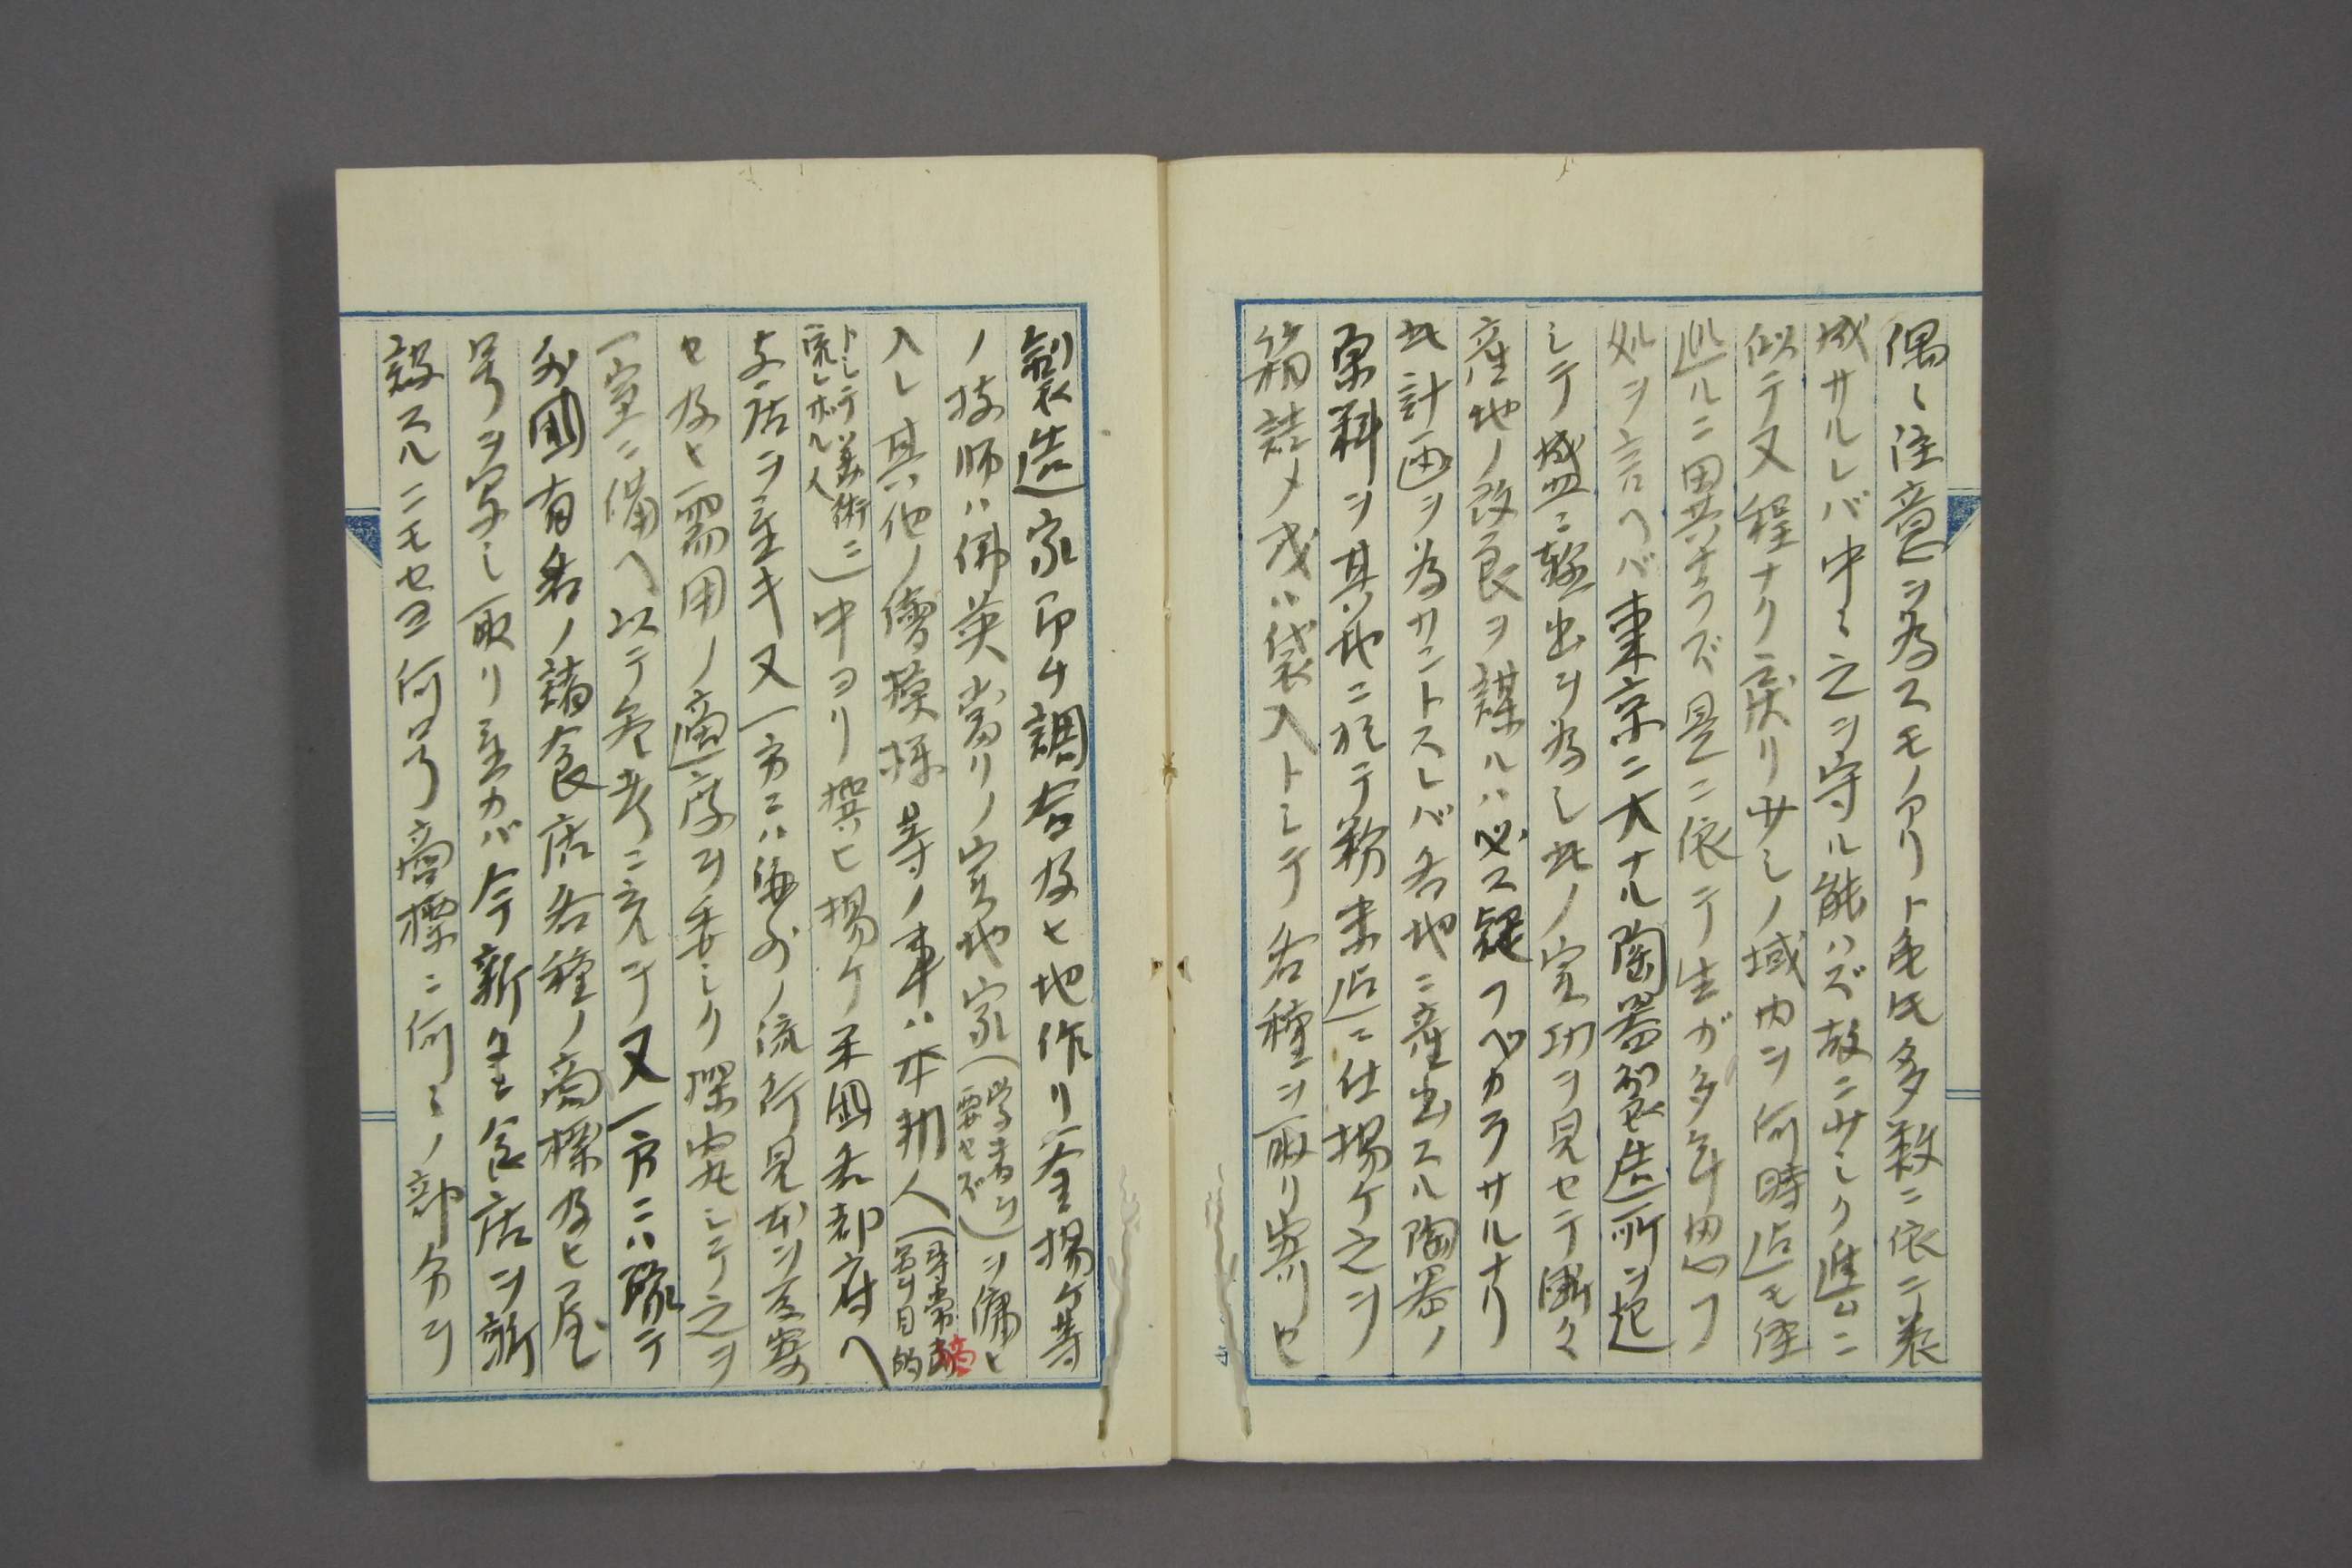 偶々注意ヲ為スモノアリト雖氏多数ニ依テ養
成サルレバ中々之ヲ守ル能ハズ故ニ少シク進ムニ
似テ又程ナク戻リ少シノ域内ヲ何時迄モ往
返ルニ異ナラズ是ニ依テ生ガ多年思フ
処ヲ言ヘバ東京ニ大ナル陶器製造所ヲ起
シテ盛ニ輸出ヲ為シ此ノ実功ヲ見セテ漸々
産地ノ改良ヲ謀ルハ必ス疑フベカラサルナリ
此計画ヲ為サントスレバ各地ニ産出スル陶器ノ
原料ヲ其地ニ於テ粉末迄ニ仕揚ケ之ヲ
箱詰メ或ハ袋入トシテ各種ヲ取リ寄セ
製造家即チ調合及ヒ地作リ釜揚ケ等
ノ技師ハ佛英当リノ実地家(学者ヲ要セズ)ヲ傭ヒ
入レ其他ノ繪摸様等ノ事ハ本朝人(尋常ヲ目的
トシテ美術ニ流レザル人)中ヨリ撰ヒ揚ケ米国各都府ヘ
支店ヲ置キ又一方ニハ海外ノ流行見本ヲ取寄
セ及ヒ需用ノ適度ヲ委シク探究シテ之ヲ
一室ニ備ヘ以テ参考ニ充テ又一方ニハ豫テ
外国有名ノ諸食店各種ノ商標及ヒ屋
号ヲ写シ取リ置カバ今新タニ食店ヲ新
設スルニモセヨ何号商標ニ何々ノ部分ヲ